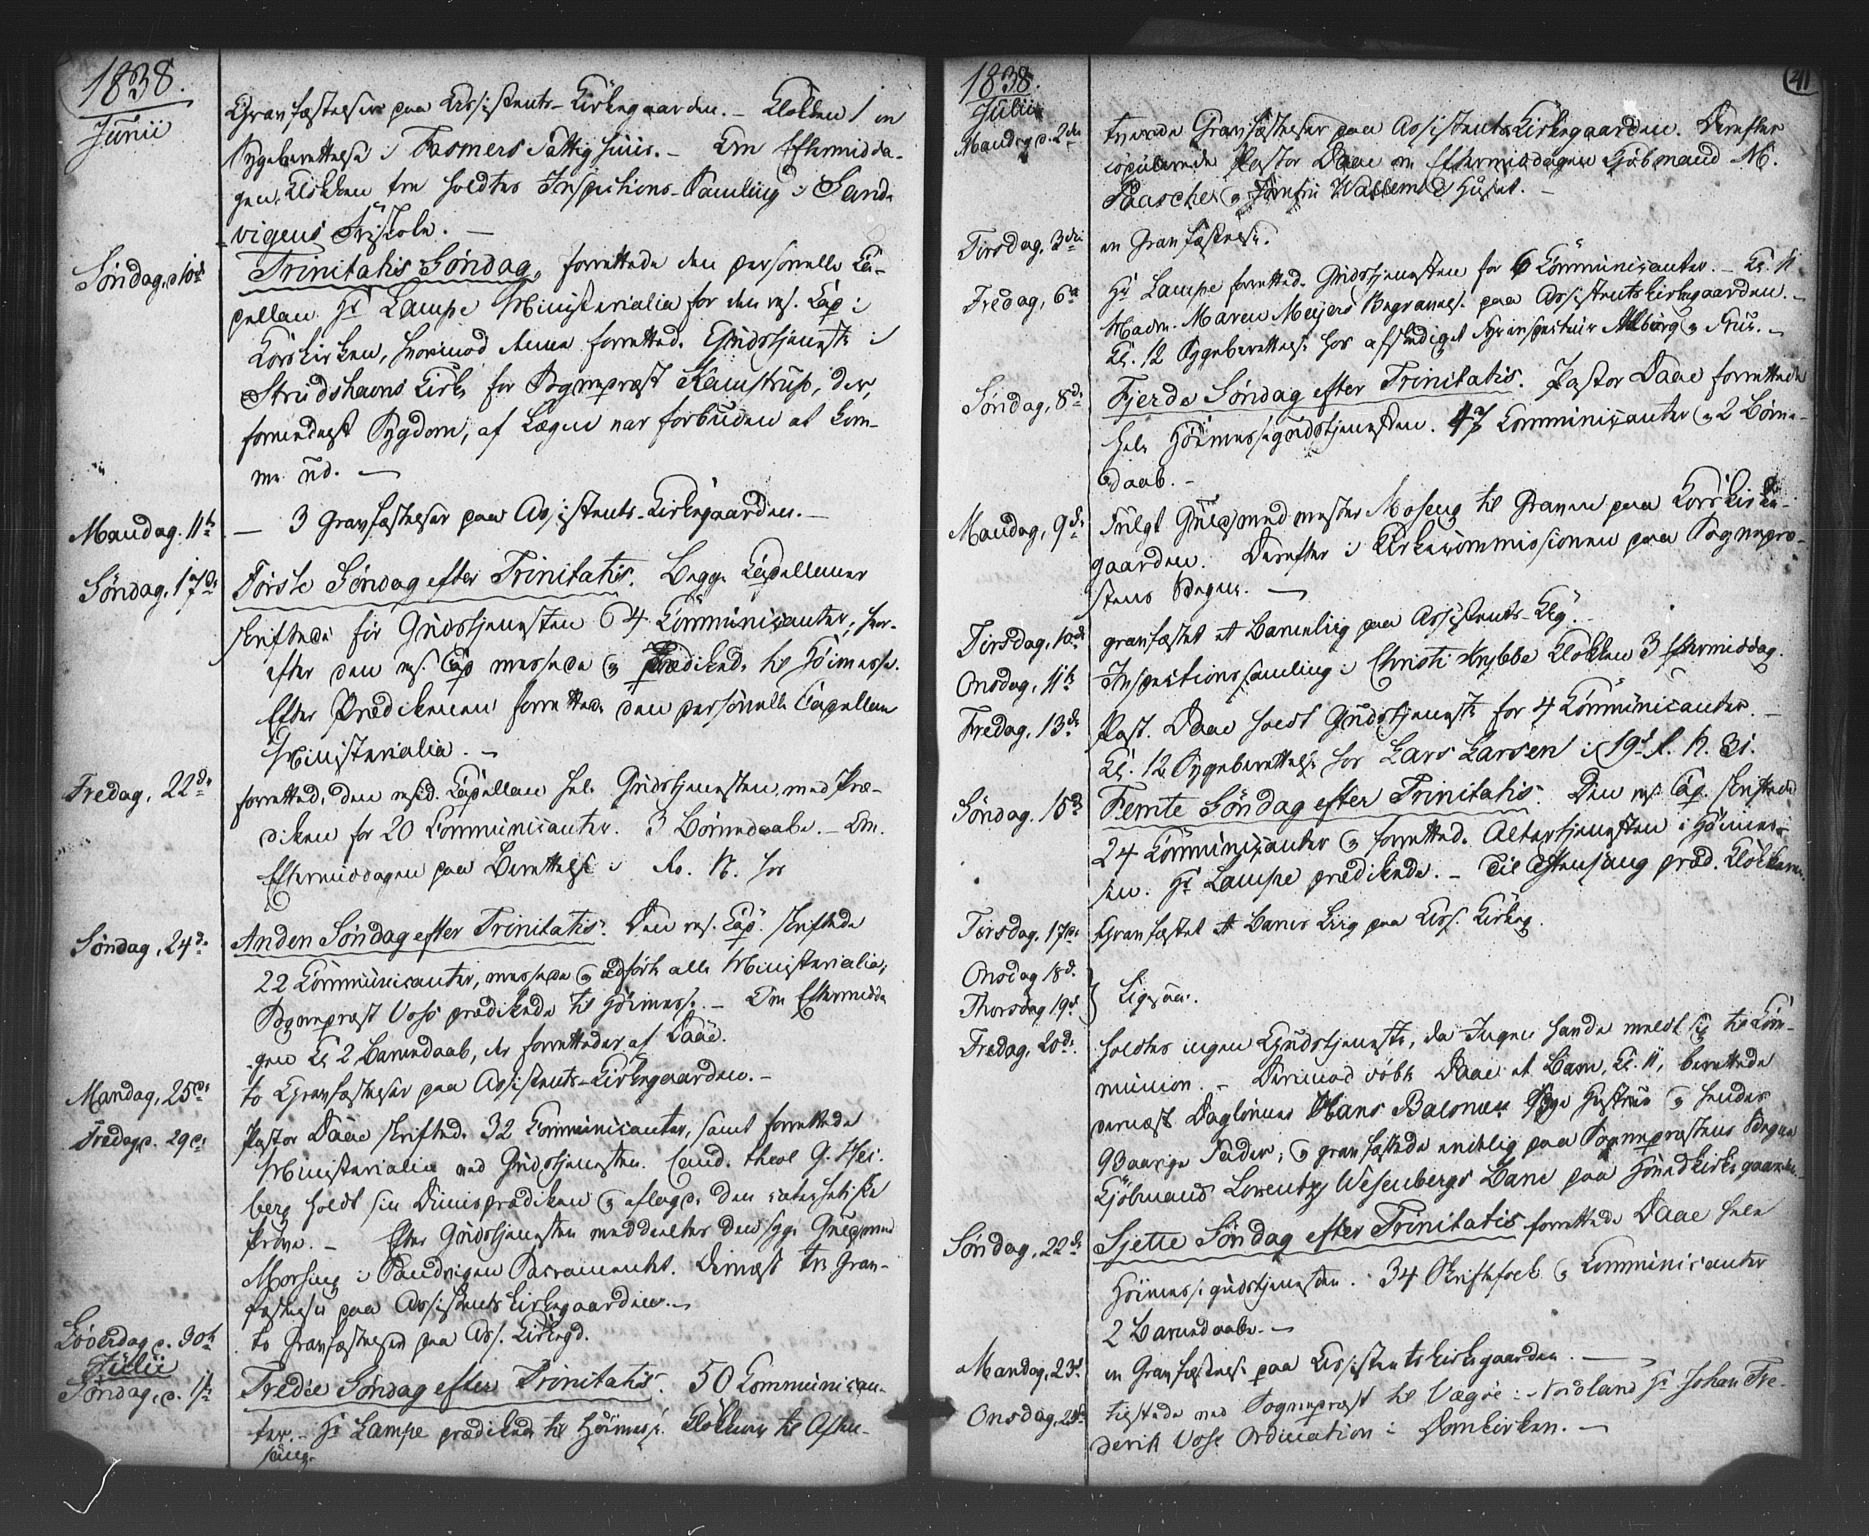 1838.
Junii
Gravfæstelser paa Assistents-Kirkegaarden. – Klokken 1 en
Sygeberettelse i Fasmers Fattighuus. – Om Eftermidda-
gen, Klokken tre holdtes Inspections-Samling i Sand-
vigens Friskole. –
Søndag, d. 10de
Trinitatis Søndag, forrettede den personelle Ca-
pellan Hr Lampe Ministerialia for den res. Cap: i
Korskirken, hvorimod denne forrettede Gudstjeneste i
Strudshavns Kirke for Sognepræst Kamstrup, der,
formedelst Sygdom, af Lægen var forbuden at kom-
me ud. –
Mandag. 11te
– 3 Gravfæstelser paa Assistents-Kirkegaarden. –
Søndag, 17de
Første Søndag efter Trinitatis. Begge Capellaner
skriftede før Gudstjenesten 64 Communicanter, hvor-
efter den res. Cap messede og prædikede til Høimesse.
Efter Prædikenen forrettede den personelle Capellan
Ministerialia. –
Fredag, 22de
forrettede den resid. Capellan hele Gudstjenesten med Præ-
diken for 20 Communicanter. 3 Børnedaabe. – Om
Eftermiddagen paa Berettelse i Ro. N. hos
Søndag, 24de
Anden Søndag efter Trinitatis. Den res. Cap. skriftede
22 Communicanter, messede og udførte alle Ministerialia,
Sognepræst Voss prædikede til Høimesse. – Om Eftermidda-
gen Kl 2 Barnedaab, der forrettedes af Daae.
Mandag, 25de
to Gravfæstelser paa Assistents-Kirkegaarden. –
Fredag d. 29de
Pastor Daae skriftede 32 Communicanter, samt forrettede
Ministerialia ved Gudstjenesten. Cand. theol G. Hei-
berg holdt sin Dimisprædiken og aflagde den catechetiske
Prøve. – Efter Gudstjenesten meddeeltes den syge Guldsmed
Morseng i Sandvigen Sacramentet. Dernæst tre Grav-
fæstelser paa Assistents Kirkegaarden. –
Løverdag d. 30te
to Gravfæstelser paa Ass. Kirkegd.
Julii
Søndag, d. 1ste
Tredie Søndag efter Trinitatis. 50 Communican-
ter. – Hr Lampe prædikede til Høimesse. Klokkeren til Aften-
sang.
1838.
Julii
41
Mandag d. 2den
tvende Gravfæstelser paa Assistents Kirkegaarden. Derefter
copulerede Pastor Daae om Eftermiddagen Kjøbmand M.
Paasche og Jomfru Wallem i Huset. –
Tirsdag, 3die
en Gravfæstelse.
Fredag, 6te
Hr Lampe forrettede Gudstjenesten for 6 Communicanter. – Kl. 11
Madm. Maren Meyers Begravelse paa Assistents Kirkegaarden. –
Kl. 12 Sygeberettelse hos afskediget Aalborg og Frue. –
Søndag, 8de
Fjerde Søndag efter Trinitatis. Pastor Daae forrettede
hele Høimessegudstjenesten. 47 Communicanter og 2 Børne-
daab. –
Mandag, 9de
Fulgt Guldsmedmester Moseng til Graven paa Korskirke-
gaarden. Derefter i Kirkecommissionen paa Sognepræ-
stens Vegne. –
Tirsdag, 10de
gravfæstet et Barnelig paa Assistents-Kkg.
Onsdag, 11te
Inspectionssamling i Christi Krybbe Klokken 3 Eftermiddag.
Fredag, 13de
Past. Daae holdt Gudstjeneste for 4 Communicanter. –
Kl. 12 Sygeberettelse hos Lars Larsen i 19de R. N. 31.
Søndag, 15de
Femte Søndag efter Trinitatis. Den res. Cap. skriftede
24 Communicanter og forrettede Altertjenesten i Høimes-
sen. Hr Lampe prædikede. – Til Aftensang præd. Klokkeren.
Tirsdag, 17de
Gravfæstet et Barns Liig paa Ass. Kirkeg.
Onsdag 18de
Thorsdag, 19de
} Ligesaa.
Fredag, 20de
holdtes ingen Gudstjeneste, da Ingen havde meldt sig til Com-
munion. – Derimod døbte Daae et Barn, Kl. 11, berettede
dernæst Daglønner Hans syge Hustrue og hendes
93 aarige Fader; og gravfæstede endelig paa Sognepræstens Vegne
Kjøbmand Lorentz Wesenbergs Barn paa Kirkegaarden.
Søndag, 22de
Sjette Søndag efter Trinitatis forrettede Daae hele
Høimessegudstjenesten. 34 Skriftefolk og Communicanter
2 Barnedaabe. –
Mandag, 23de
en Gravfæstelse paa Assistents Kirkegaarden. –
Onsdag, 25de
tilstede ved Sognepræst til Vægøe i Nordland Hr Johan Fre-
derik Voss Ordination i Domkirken. –